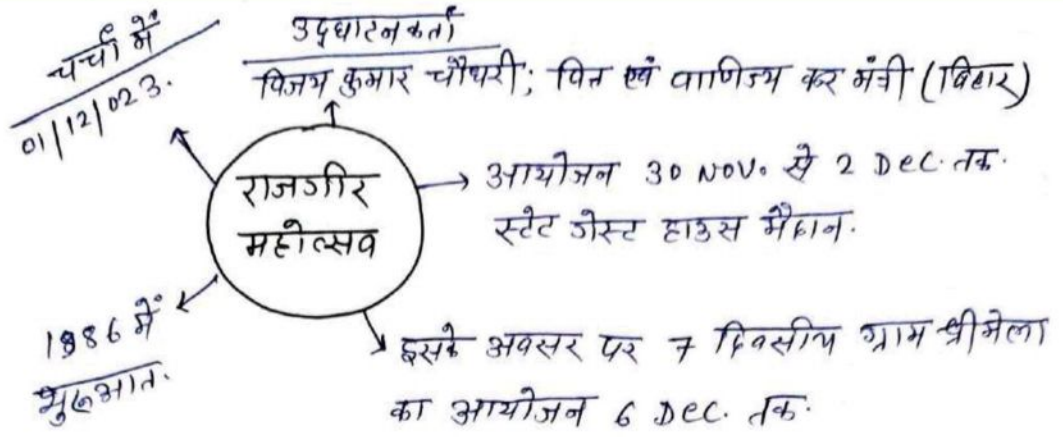 चर्चा में
01/12/023.
उद्घाटनकर्ता
विजय कुमार चौधरी; वित्त एवं वाणिज्य कर मंत्री (बिहार)
राजगीर
महोत्सव
आयोजन 30 NOV. से 2 Dec. तक.
स्टेट गेस्ट हाउस मैदान.
1986 में
शुरुआत.
इसके अवसर पर 7 दिवसीय ग्राम श्री मेला
का आयोजन 6 Dec. तक.